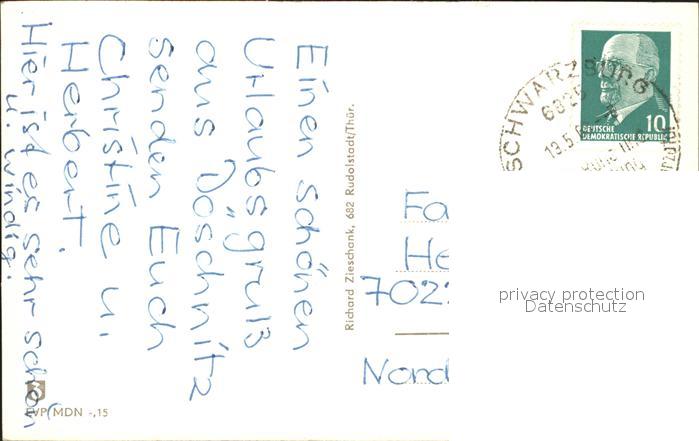 Einen schönen
Urlaubsgruß
aus Döschnitz
senden Euch
Christine u.
Herbert.
Hier ist es sehr schön
u. windig.
Richard Zieschank, 682 Rudolstadt/Thür.
EVP MDN -,15
SCHWARZBURG
DEUTSCHE
DEMOKRATISCHE REPUBLIK
10
Fa
He
702
Nord
privacy protection
Datenschutz